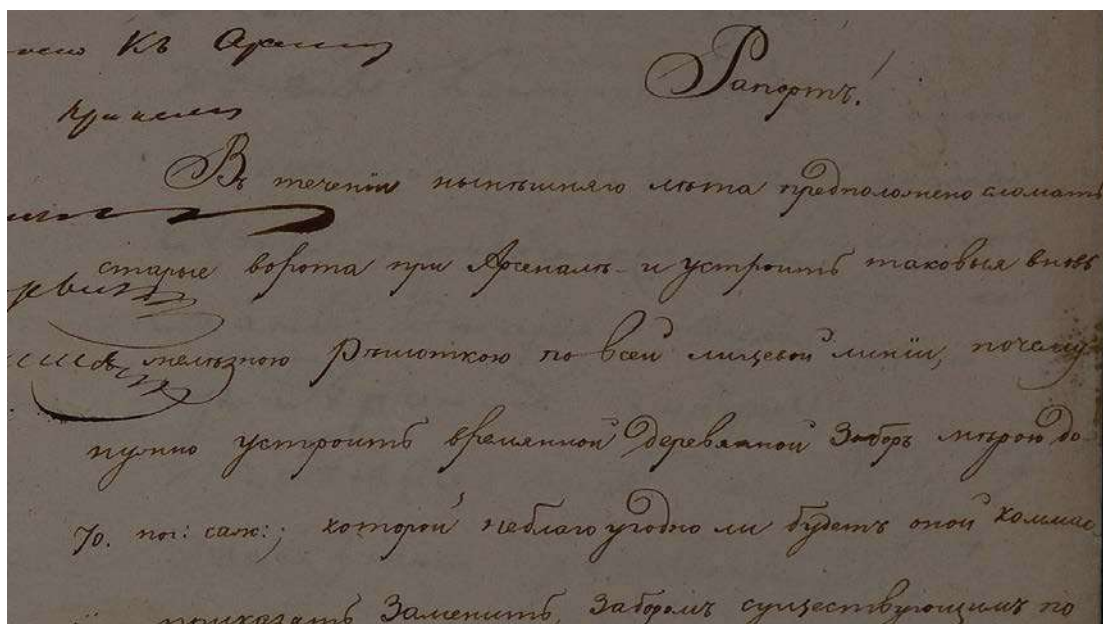 Къ
Рапортъ!
Въ теченіи нынѣшняго лѣта предположено сломать
старые ворота при Арсеналѣ и устроить таковыя вновь
желѣзною рѣшоткою по всей лицевой линіи, почему
нужно устроить временной деревянной заборъ мѣрою до
70. пог: саж:; которой неблагоугодно ли будетъ оной Коммис
приказать заменить заборомъ существующимъ по